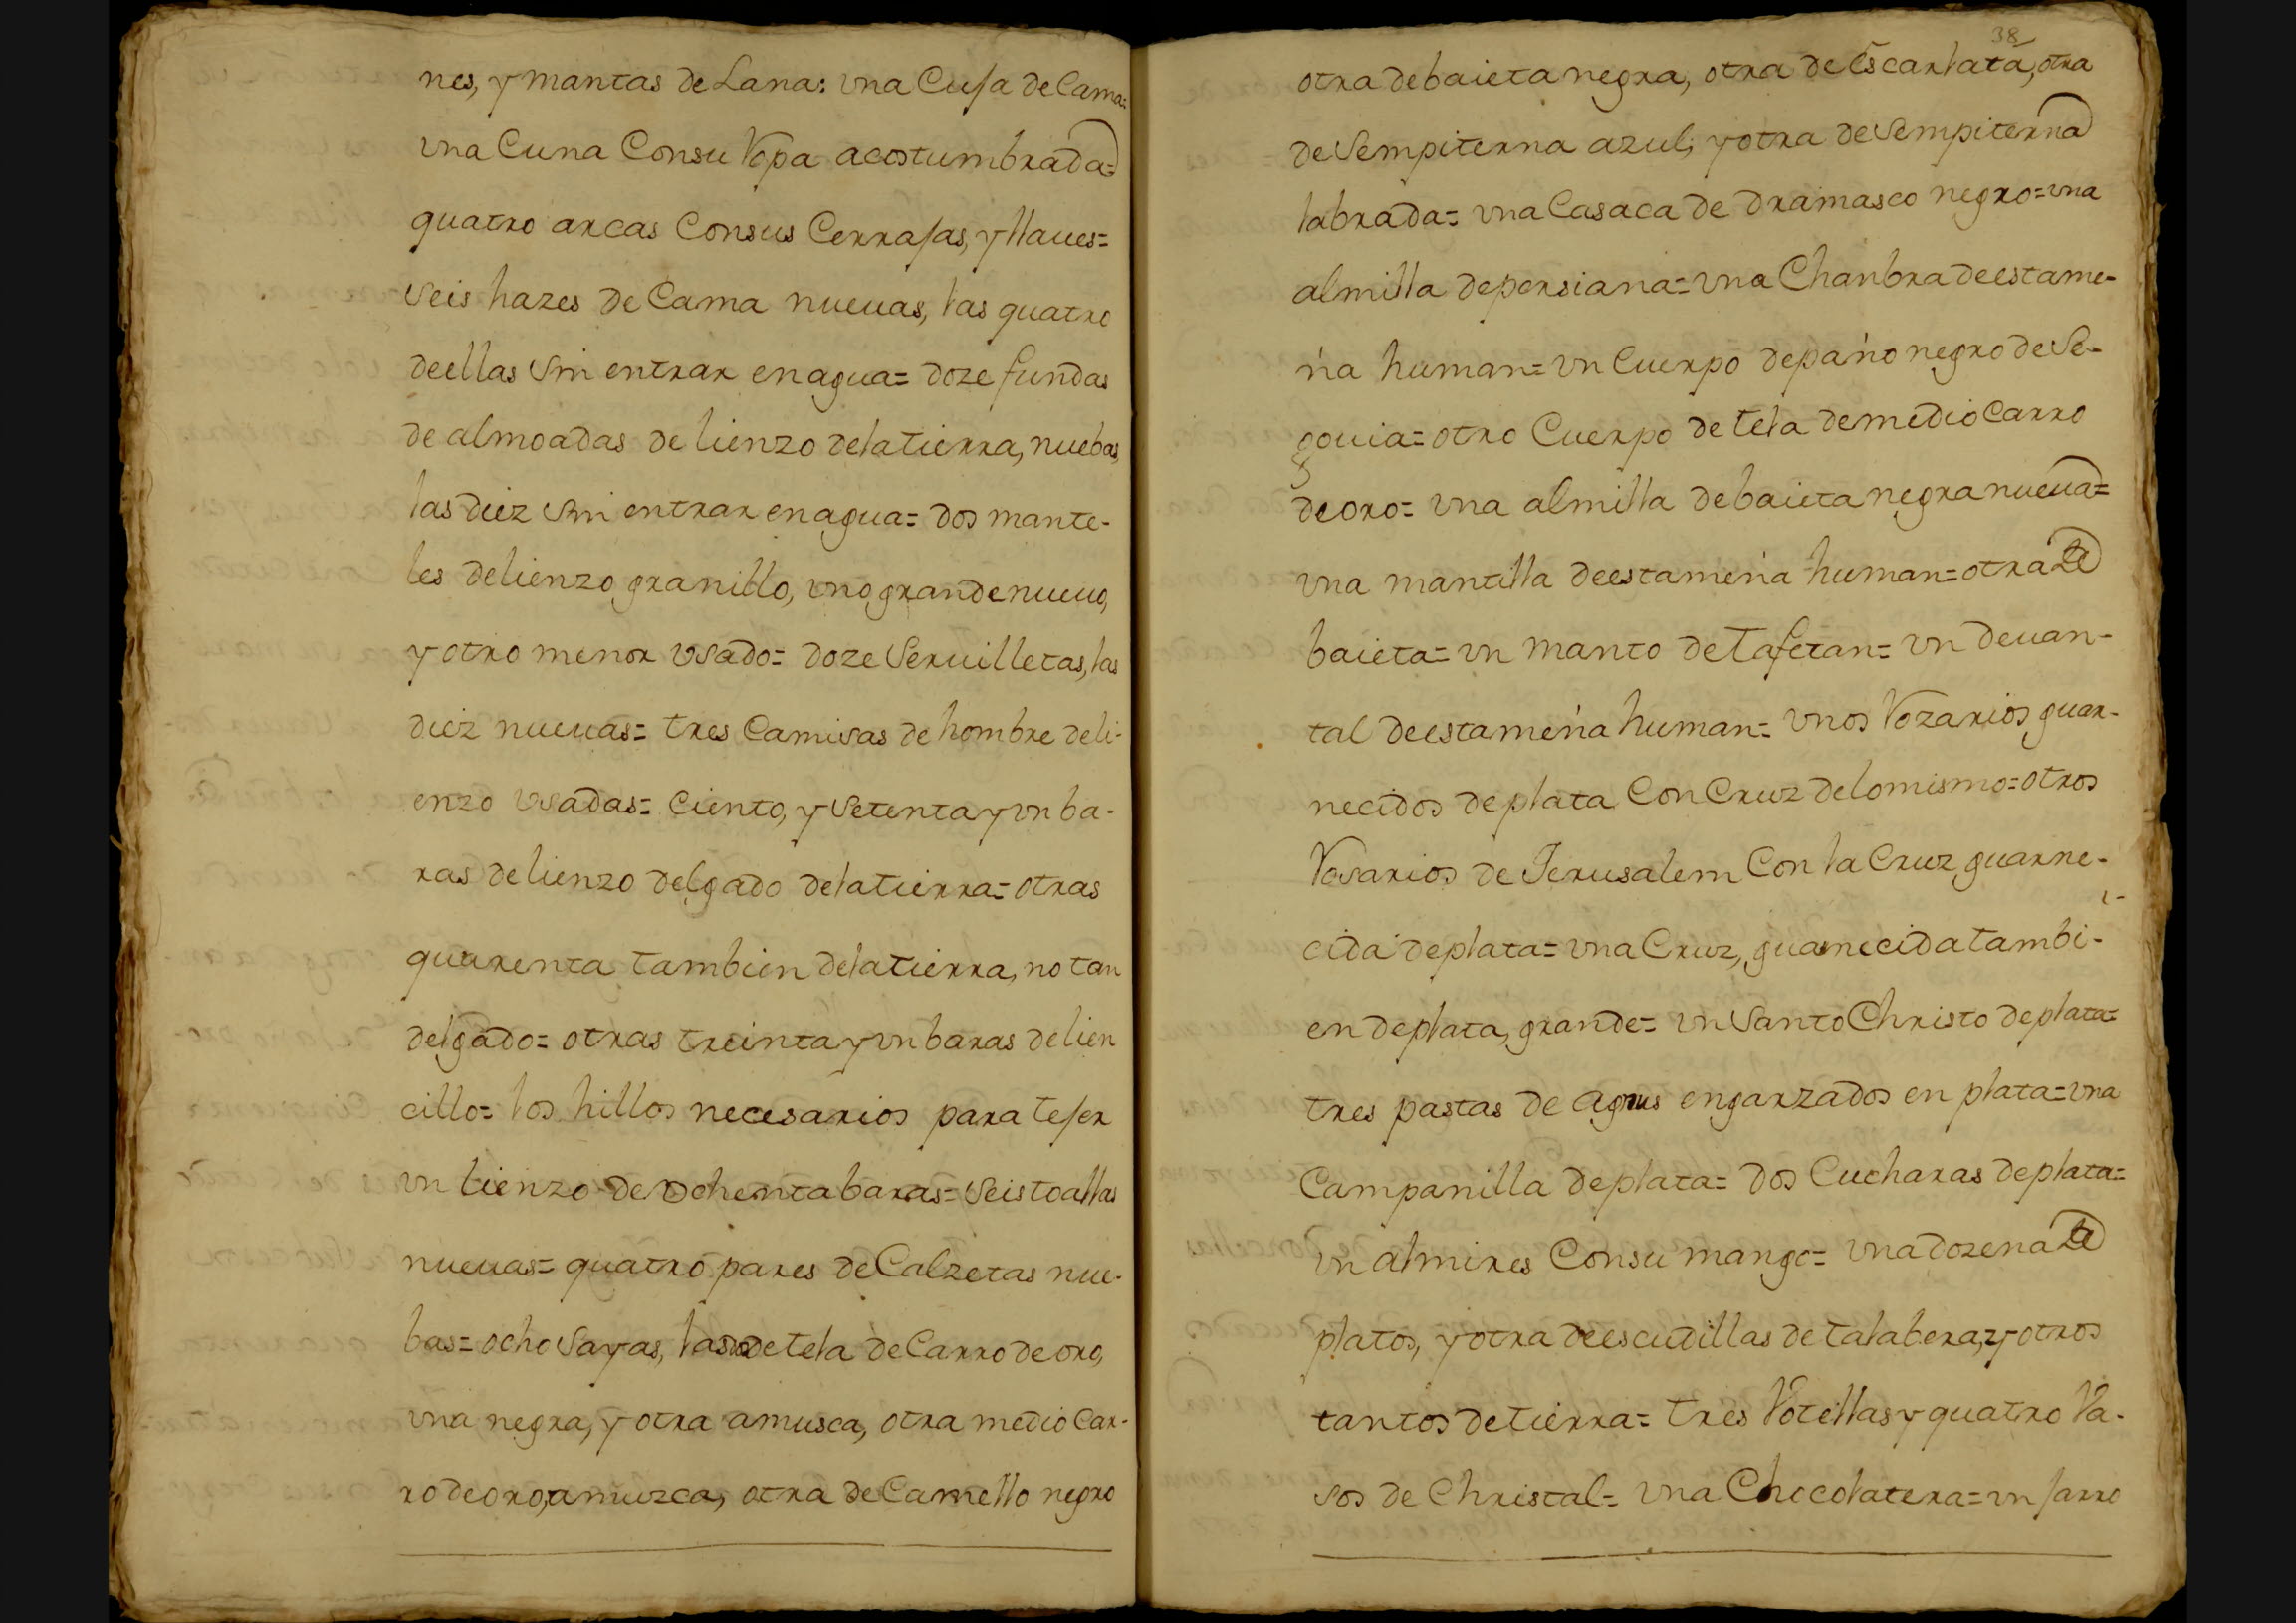 nes, y mantas de Lana: vna Cuja de Cama=
vna Cuna Consu Ropa acostumbrada=
quatro arcas Consus Cerrajas, y llaues=
seis hazes de Cama nueuas, las quatro
deellas sin entrar enagua= doze fundas
de almoadas de lienzo delatierra, nuebas,
las diez sin entrar enagua= dos mante-
les delienzo granillo, vno grande nueuo,
y otro menor vsado= doze seruilletas, las
diez nueuas= tres Camisas de hombre deli-
enzo vsadas= Ciento, y setenta y vn ba-
ras delienzo delgado delatierra= otras
quarenta tambien delatierra, no tan
delgado= otras treinta y vn baras delien
cillo= los hillos necesarios para tejer
vn lienzo de ochenta baras= seis toallas
nueuas= quatro pares de Calzetas nue-
bas= ocho sayas, las dos de tela de Carro de oro,
vna negra, y otra amusca, otra medio Car-
ro de oro, amuzca, otra de Camello negro
38
otra de baieta negra, otra de Escarlata, otra
de sempiterna azul; y otra de sempiterna
labrada= vna Casaca de dramasco negro= vna
almilla depersiana= vna Chanbra deestame-
ña human= vn Cuerpo depaño negro de se-
gouia= otro Cuerpo de tela de medio Carro
de oro= vna almilla debaieta negra nueua=
vna mantilla deestameña human= otra de
baieta= vn manto de tafetan= vn deuan-
tal deestameña human= vnos Rozarios guar-
necidos de plata Con Cruz delomismo= otros
Rosarios de Jerusalem Con la Cruz guarne-
cida deplata= vna Cruz, guarnecida tambi-
en deplata, grande= vn santo Christo deplata=
tres pastas de agnus engarzados en plata= vna
Campanilla deplata= dos Cucharas deplata=
vn almires Consu mango= vna dozena de
platos, y otra deescudillas de talabera, y otros
tantos detierra= tres Rotellas y quatro Va-
sos de Christal= vna Chocolatera= vn jarro